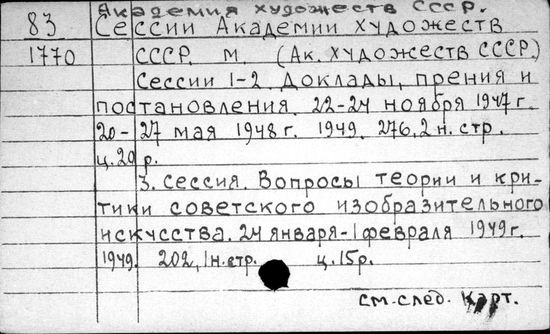 Академия художеств СССР.
83 Сессии Академии художеств
1770 СССР. М. (Ак. художеств СССР.)
Сессии 1-2. Доклады, прения и
постановления. 22-24 ноября 1947г.
20-27 мая 1948г. 1949. 276, 2 н. стр.
ц. 20 р.
3. сессия. Вопросы теории и кри-
тики советского изобразительного
искусства. 24 января-1 февраля 1949г.
1949. 202, 1 н. стр. ц. 15р.
см. след. карт.